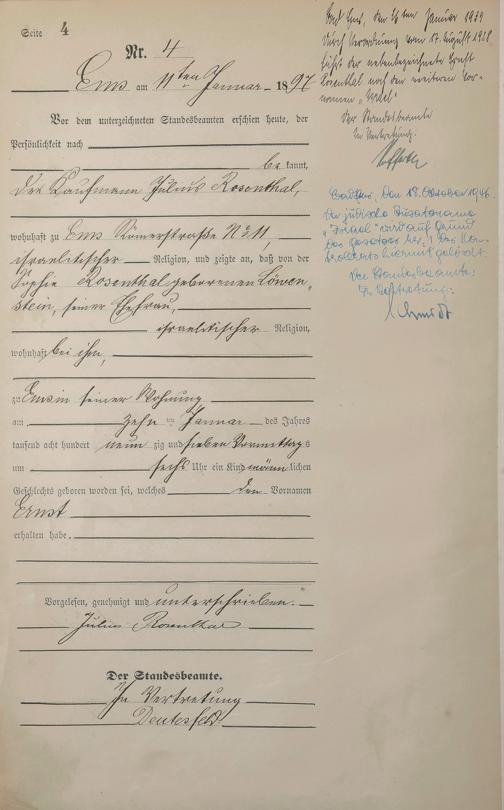 Seite 4
Nr. 4
Ems am 11ten Januar 1897
Vor dem unterzeichneten Standesbeamten erschien heute, der
Persönlichkeit nach
be kannt,
der Kaufmann Julius Rosenthal,
wohnhaft zu Ems Römerstraße No 11,
israelitischer Religion, und zeigte an, daß von der
Sophie Rosenthal geborenen Löwen-
stein, seiner Ehefrau,
israelitischer Religion,
wohnhaft bei ihm,
zu Ems in seiner Wohnung
am zehn ten Januar des Jahres
tausend acht hundert neun zig und sieben Vormittags
um sechs Uhr ein Kind männ lichen
Geschlechts geboren worden sei, welches den Vornamen
Ernst
erhalten habe.
Vorgelesen, genehmigt und unterschrieben.
Julius Rosenthal
Der Standesbeamte.
In Vertretung
Bad Ems, den ten Januar 1939
Durch Verordnung vom 17. August 1938
führt der nebenbezeichnete Ernst
Rosenthal noch den weiteren Vor-
namen „Israel"
Der Standesbeamte
In Vertretung.
Bad Ems, den 18. Oktober 1946.
Der jüdische Zusatzname
„Israel" wird auf Grund
des Gesetzes Nr. 1 des Kon-
trollrats hiermit gelöscht.
Der Standesbeamte:
In Vertretung:
Schmidt